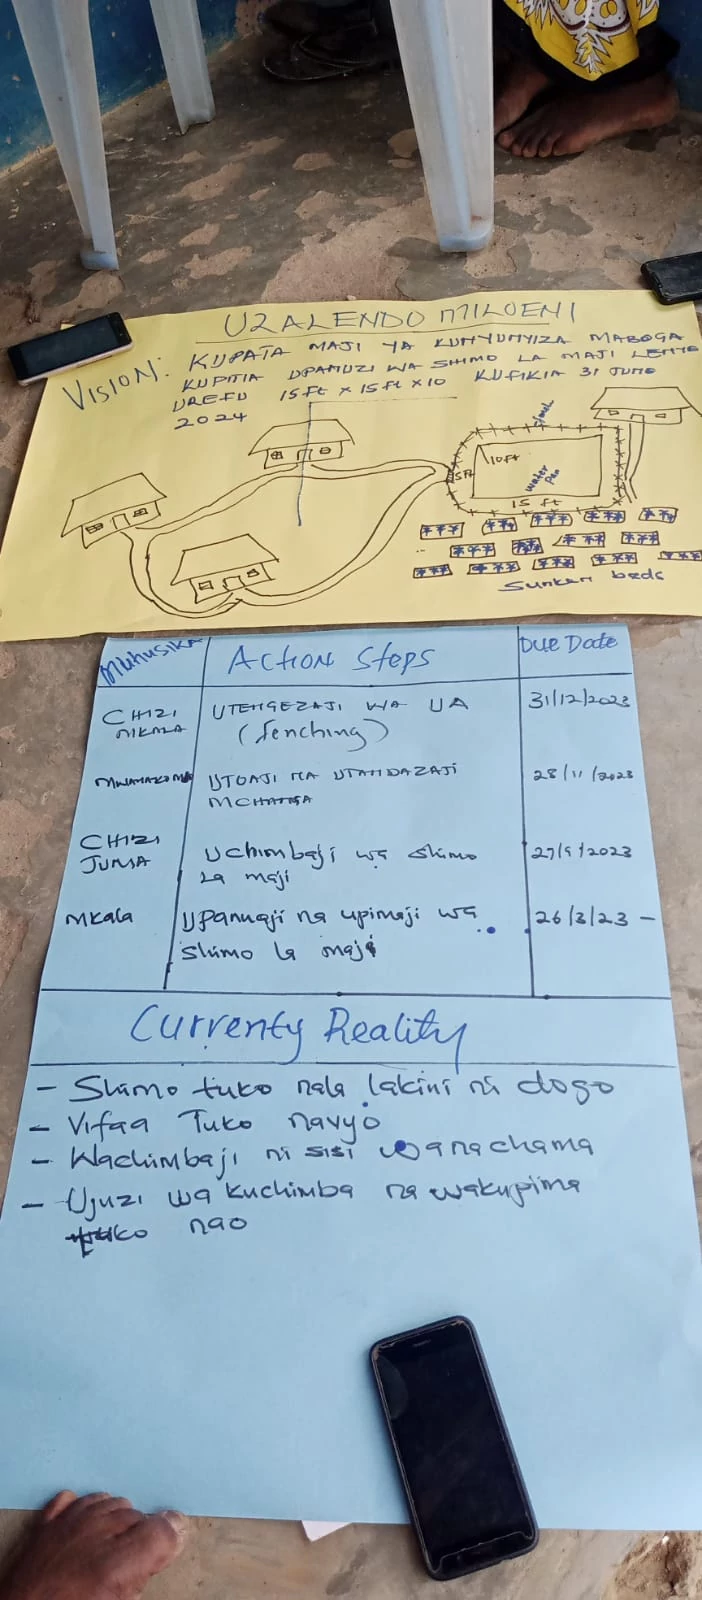 UZALENDO MILOENI
VISION: KUPATA MAJI YA KUNYUNYIZA MABOGA
KUPITIA UPANUZI WA SHIMO LA MAJI LENYE
UREFU 15ft x 15ft x 10 KUFIKIA 31 JUNE
2024
10ft
water
pan
15 ft
Sunken beds
Muhusika
ACtion Steps
Due Date
CHIZI
NIKALA
UTENGEZAJI WA UA
(fenching)
31/12/2023
UTOAJI NA UTANDAZAJI
MCHANGA
28/11/2023
CHIZI
JUMA
Uchimbaji wa shimo
la maji
27/9/2023
Mkala
Upanuaji na upimaji wa
shimo la maji
26/3/23 -
Currenty Reality
- Shimo tuko nala lakini ni dogo
- Vifaa Tuko navyo
- Wachimbaji ni sisi wanachama
- Ujuzi wa kuchimba na wakupima
tuko nao